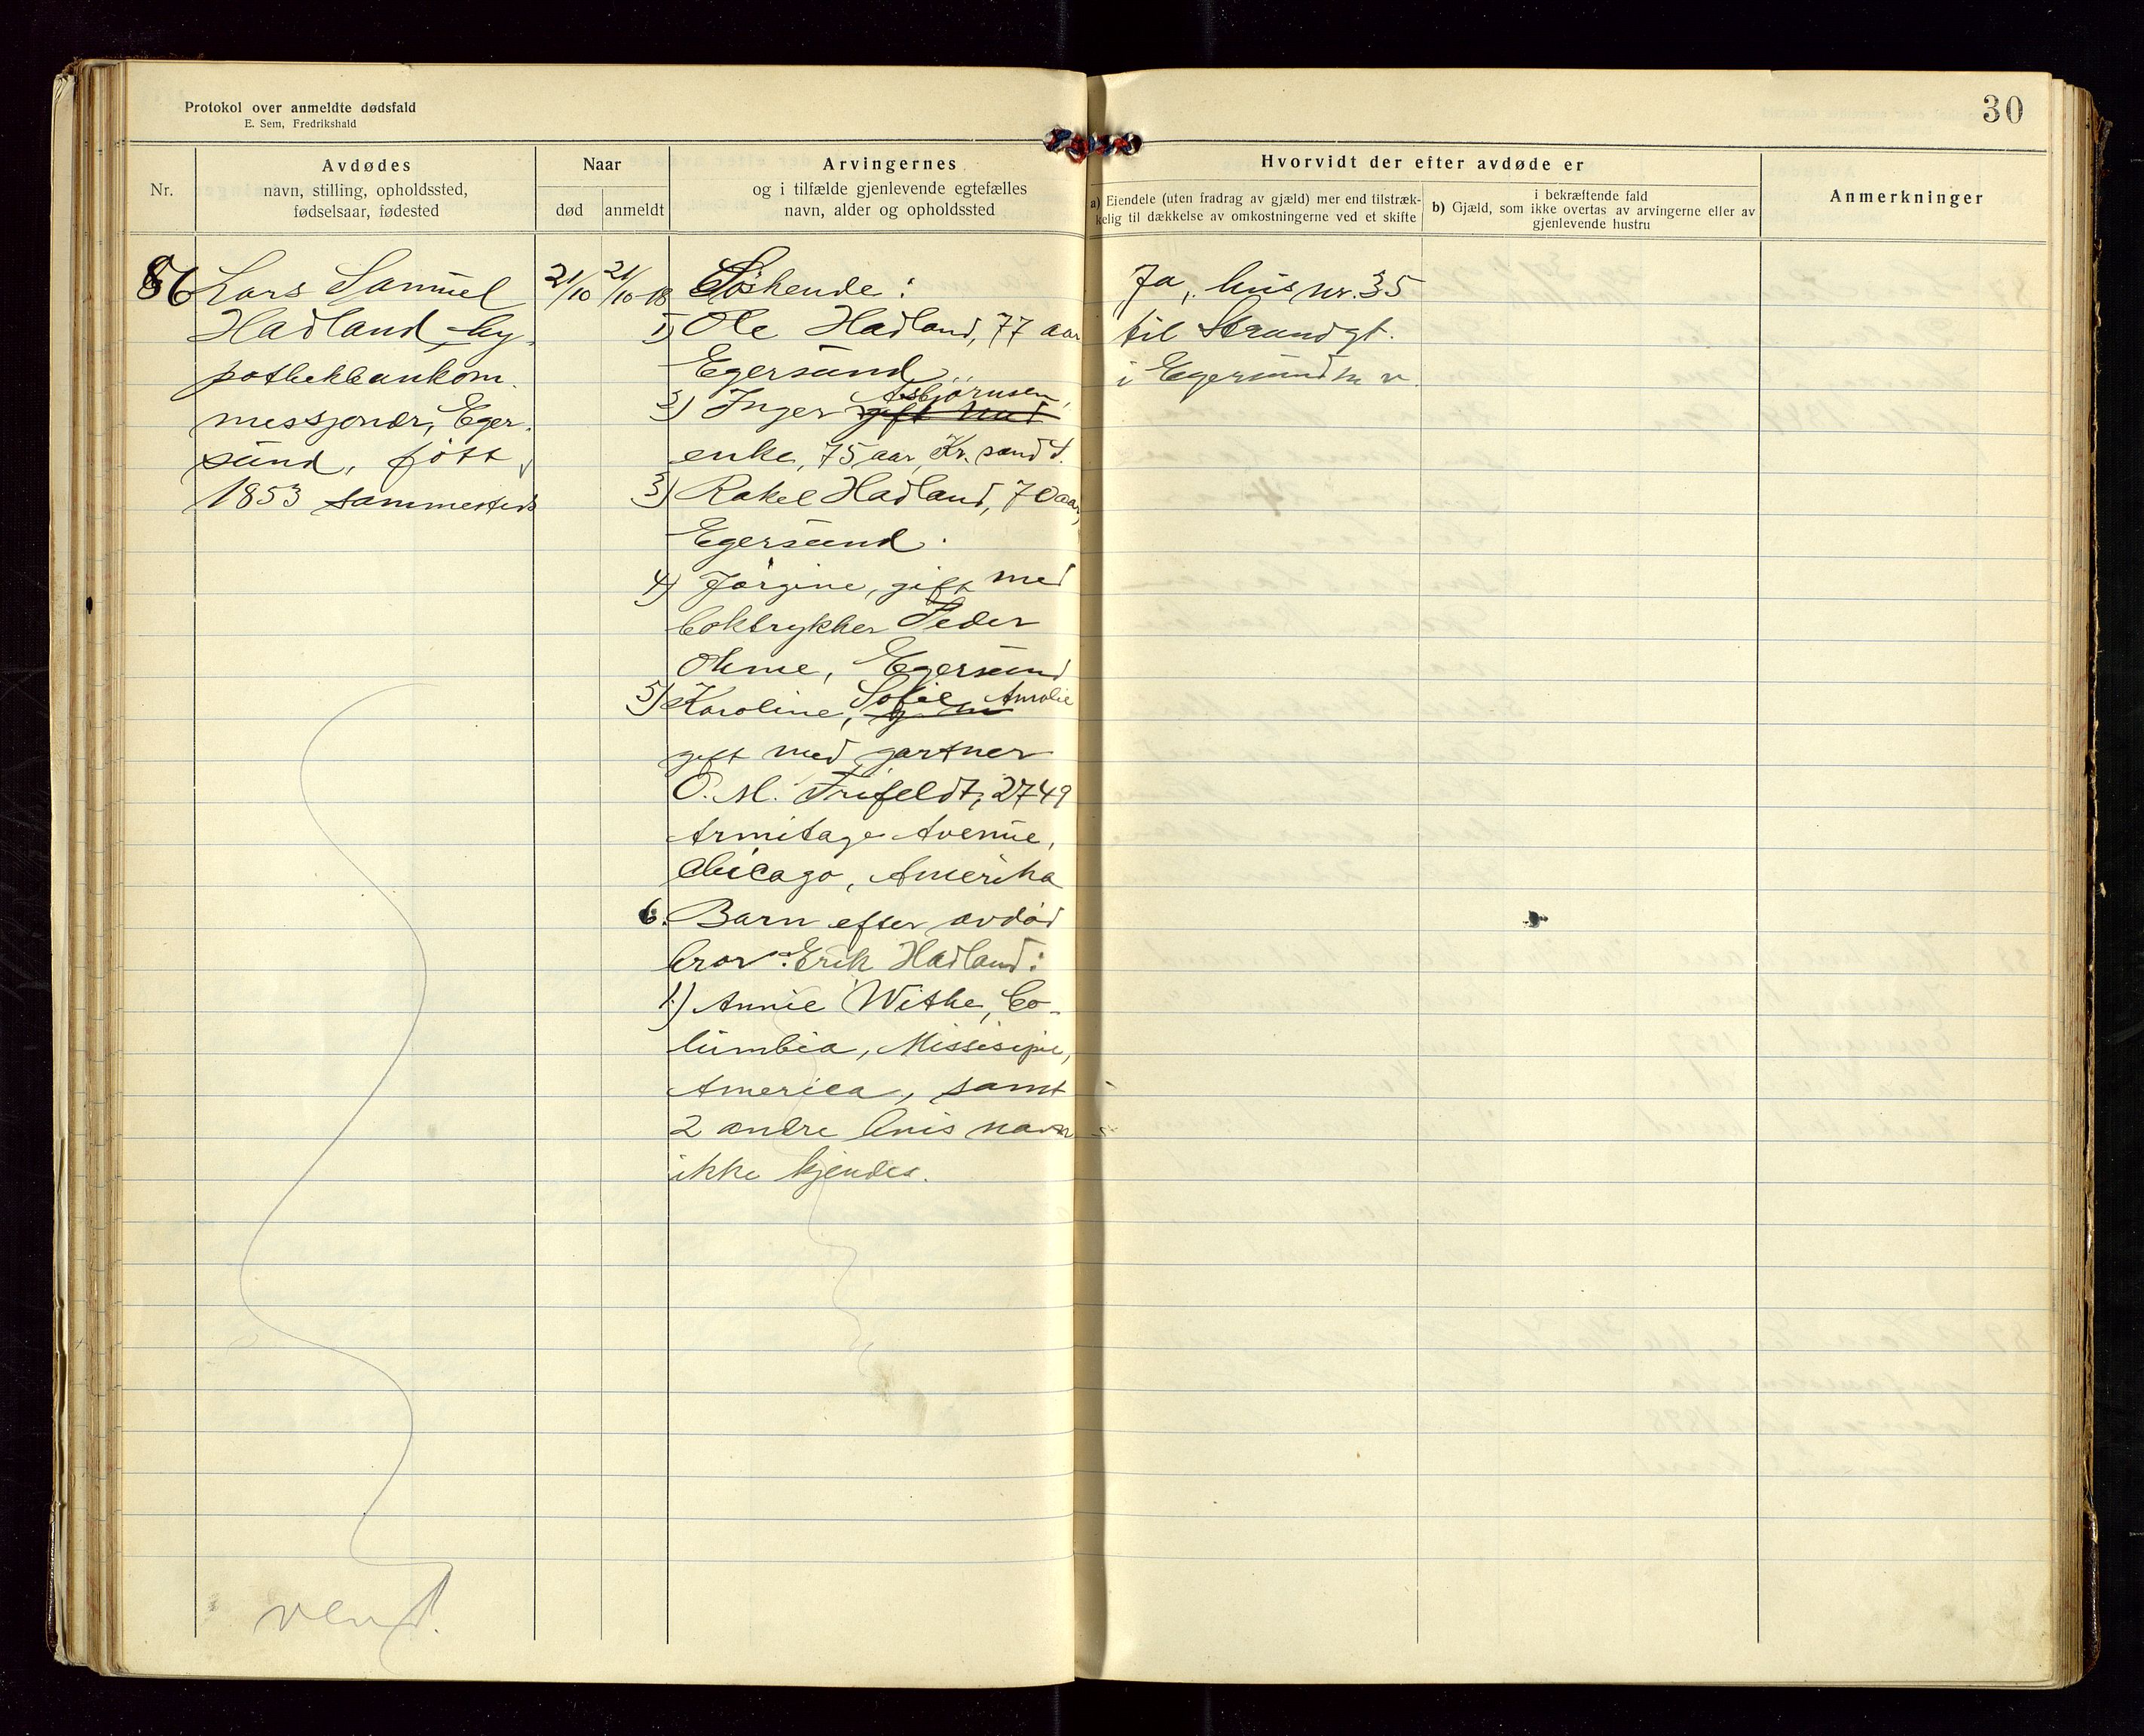 Protokol over anmeldte dødsfald
E. Sem, Fredrikshald
30
Nr.
Avdødes
navn, stilling, opholdssted,
fødselsaar, fødested
Naar
død
anmeldt
Arvingernes
og i tilfælde gjenlevende egtefælles
navn, alder og opholdssted
Hvorvidt der efter avdøde er
a) Eiendele (uten fradrag av gjæld) mer end tilstræk-
kelig til dækkelse av omkostningerne ved et skifte
i bekræftende fald
b) Gjæld, som ikke overtas av arvingerne eller av
gjenlevende hustru
Anmerkninger
86
Lars Samuel
Hadland, hy-
pothekbankom-
missjonær, Eger-
sund, født
1853 sammesteds
21/10
21/10-18
Søskende:
1) Ole Hadland, 77 aar
Egersund
Asbjørnsen,
2) Inger gift med
enke, 75 aar, Kr.sand S.
3) Rakel Hadland, 70 aar,
Egersund.
4) Jørgine, gift med
boktrykker Peder
Ohme, Egersund
Sofie Amalie
5) Karoline,
gift med gartner
O. M. Trifeldt, 2749
Armitage Avenue,
Chicago, Amerika
6. Barn efter avdød
bror Erik Hadland:
1.) Annie Withe, Co-
lumbia, Missisipie,
America, samt
2 andre hvis navn
ikke kjendes.
Ja, hus nr. 35
til Strandgt.
i Egersund m v.
vend.